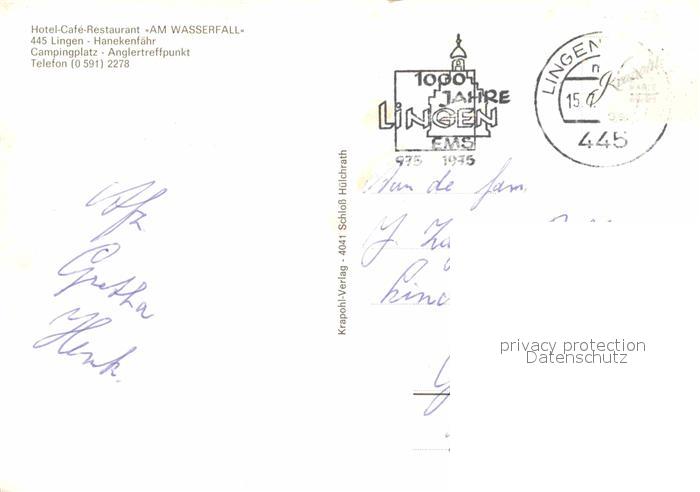 Hotel-Café-Restaurant «AM WASSERFALL»
445 Lingen - Hanekenfähr
Campingplatz - Anglertreffpunkt
Telefon (0 591) 2278
1000
JAHRE
LiNGEN
EMS
975 1975
LINGEN
15.
445
Krapohl-Verlag - 4041 Schloß Hülchrath
Aan de fam.
J.
Afz
Gretha
Henk.
privacy protection
Datenschutz